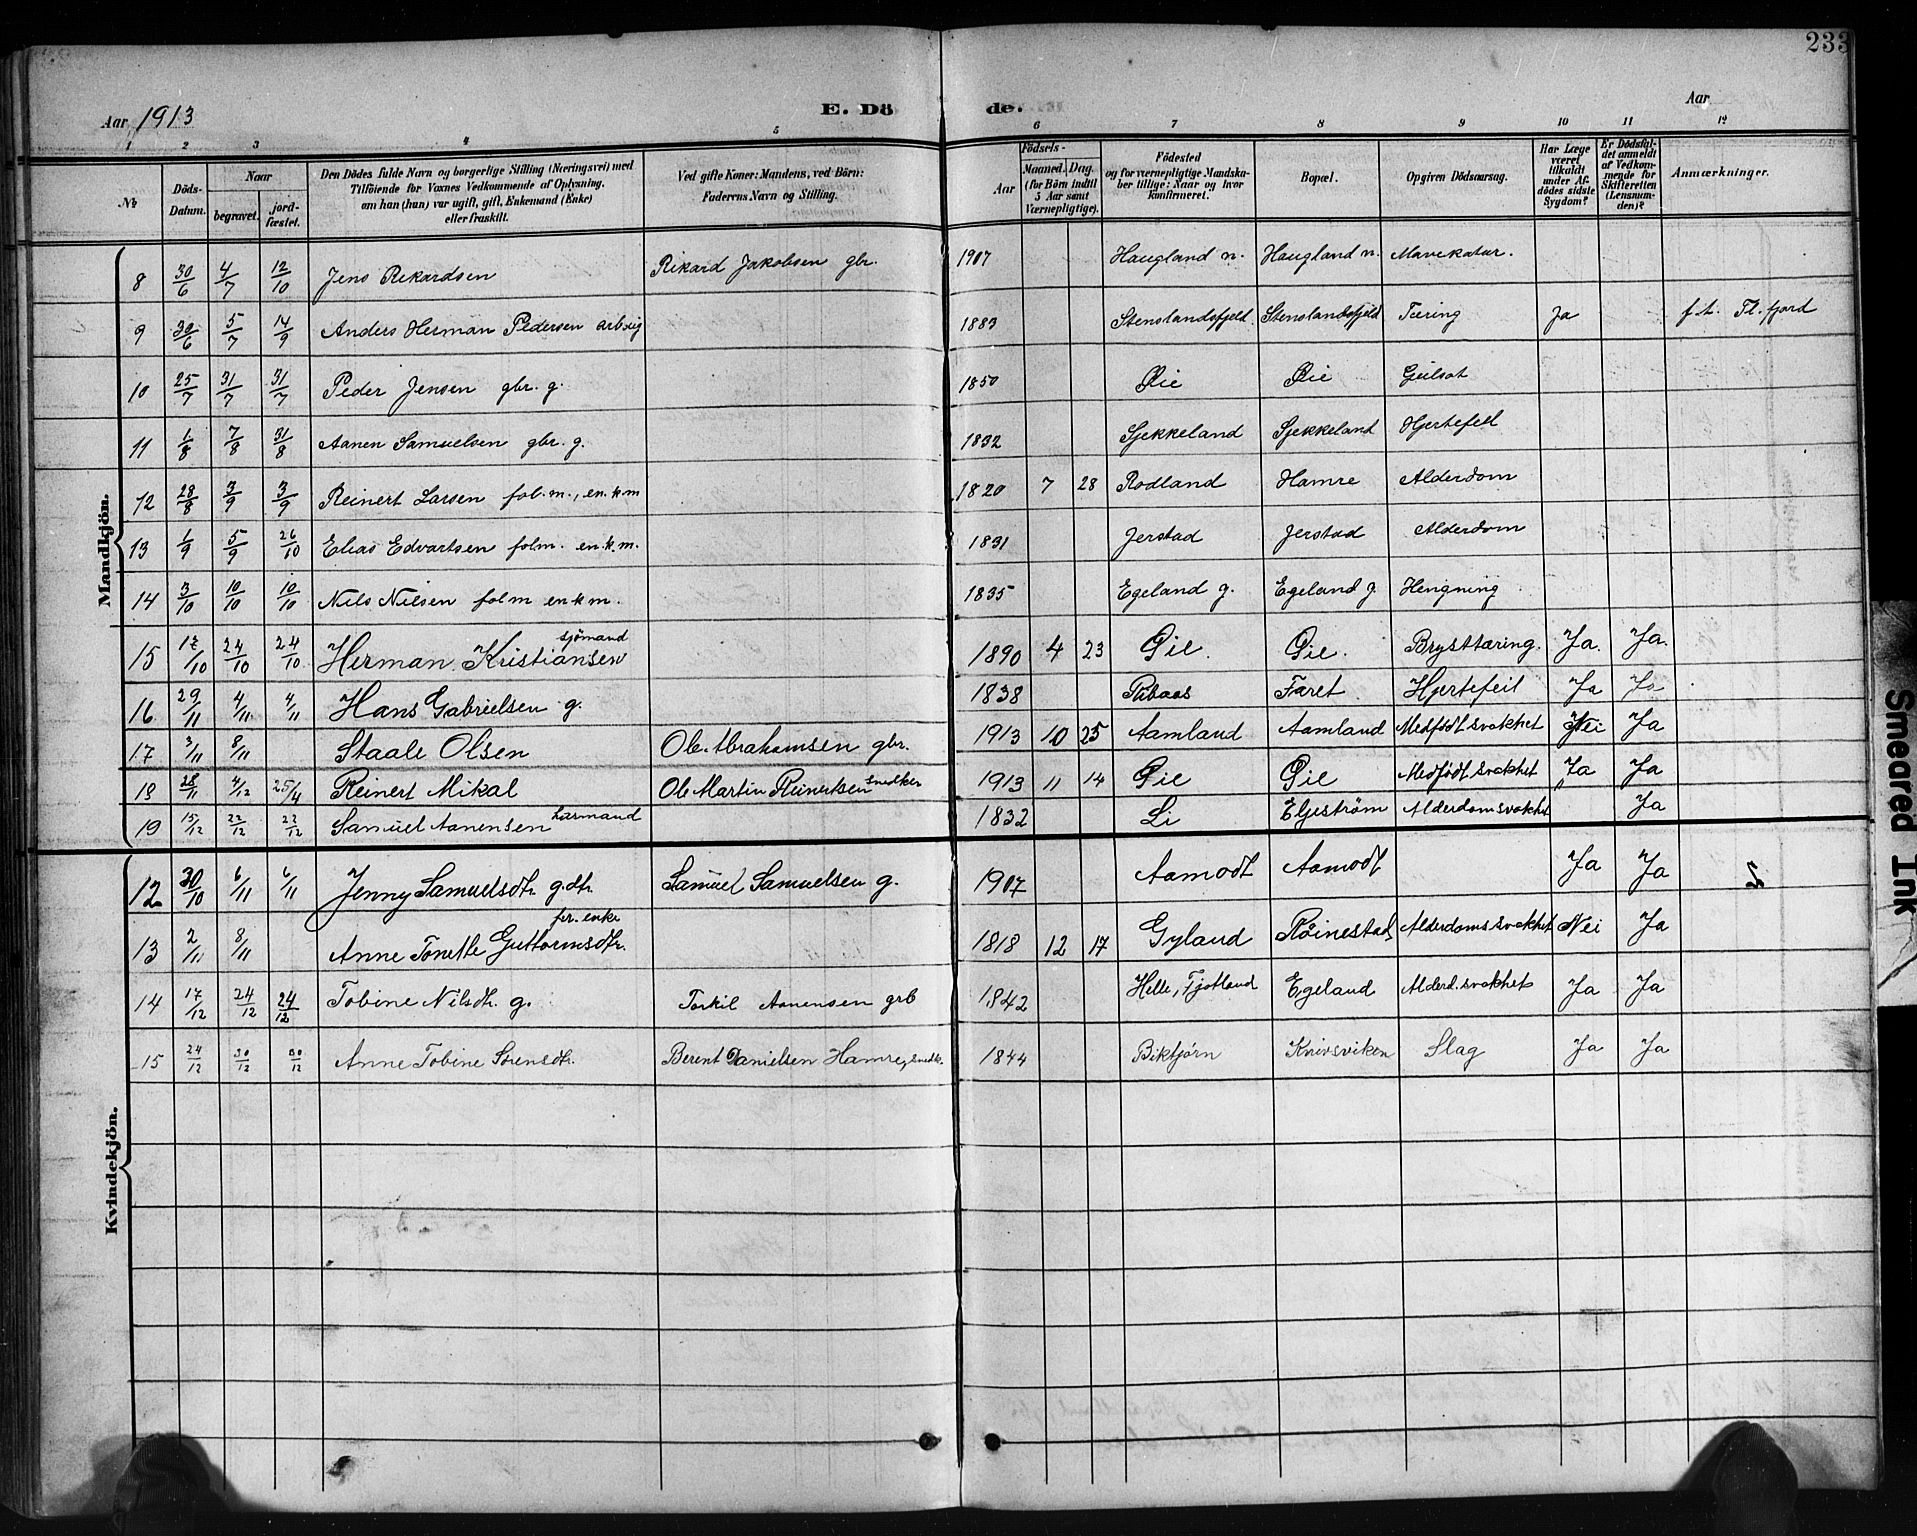 233
Aar 1913 E. Dö de. Aar
1 2 3 4 5 6 7 8 9 10 11 12
№
Döds-Datum.
Naar
begravet.
jord-fæstet.
Den Dödes fulde Navn og borgerlige Stilling (Næringsvei) med
Tilföiende for Voxnes Vedkommende af Oplysning,
om han (hun) var ugift, gift, Enkemand (Enke)
eller fraskilt.
Ved gifte Koner: Mandens, ved Börn:
Faderens Navn og Stilling.
Födsels-
Aar
Maaned. Dag.
(for Börn indtil
5 Aar samt
Værnepligtige).
Födested
og for værnepligtige Mandska-
ber tillige: Naar og hvor
konfirmeret.
Bopæl.
Opgiven Dödsaarsag.
Har Læge
været
tilkaldt
under Af-
dödes sidste
Sygdom?
Er Dödsfal-
det anmeldt
af Vedkom-
mende for
Skifteretten
(Lensman-
den)?
Anmærkninger.
Mandkjön.
8 30/6 4/7 12/10 Jens Rikardsen Rikard Jakobsen gbr. 1907 Haugland n. Haugland n. Mavekatar.
9 30/6 5/7 14/9 Anders Herman Pedersen arb. ug 1883 Stenslandsfjeld Stenslandsfjeld Tæring Ja f. t. Fl. fjord
10 25/7 31/7 31/7 Peder Jensen gbr. g. 1850 Øie Øie Gulsot
11 1/8 7/8 31/8 Aanen Samuelsen gbr. g. 1832 Sjekkeland Sjekkeland Hjertefeil
12 28/8 3/9 3/9 Reinert Larsen fol.m., en.k.m 1820 7 28 Rodland Hamre Alderdom
13 1/9 5/9 26/10 Elias Edvartsen folm. en.k.m. 1831 Jerstad Jerstad Alderdom
14 3/10 10/10 10/10 Nils Nilsen folm enkm. 1835 Egeland g. Egeland g. Hengning
15 17/10 24/10 24/10 Herman Kristiansen sjömand 1890 4 23 Øie. Øie. Brysttæring. Ja. Ja.
16 29/11 4/11 4/11 Hans Gabrielsen g. 1838 Faret Hjertefeil Ja Ja
17 3/11 8/11 Staale Olsen Ole Abrahamsen gbr. 1913 10 25 Aamland Aamland Medfödt svakhet Nei Ja
18 28/11 4/12 25/4 Reinert Mikal Ole Martin Reinertsen snedker 1913 11 14 Øie Øie Medfödt svakhet Ja Ja
19 15/12 22/12 22/12 Samuel Aanensen Li Eljeström Alderdomssvakhet Ja
1832
Kvindekjön.
12 30/10 6/11 6/11 Jenny Samuelsdtr. g.dtr. Samuel Samuelsen g. 1907 Aamodt Aamodt Ja Ja
13 2/11 8/11 Anne Tonette Guttormsdtr. enke 1818 12 17 Gyland Röinestad Alderdomssvakhet Nei Ja
14 17/12 24/12 24/12 Tobine Nilsdtr. g. Torkil Aanensen grb 1842 Helle, Fjotland Egeland Alderd.svakhet Ja Ja
15 24/12 30/12 30/12 Anne Tobine Sörensdtr. Berent Danielsen Hamre, snedk. 1844 Biktjörn Knivsviken Slag Ja Ja
Smeared Ink